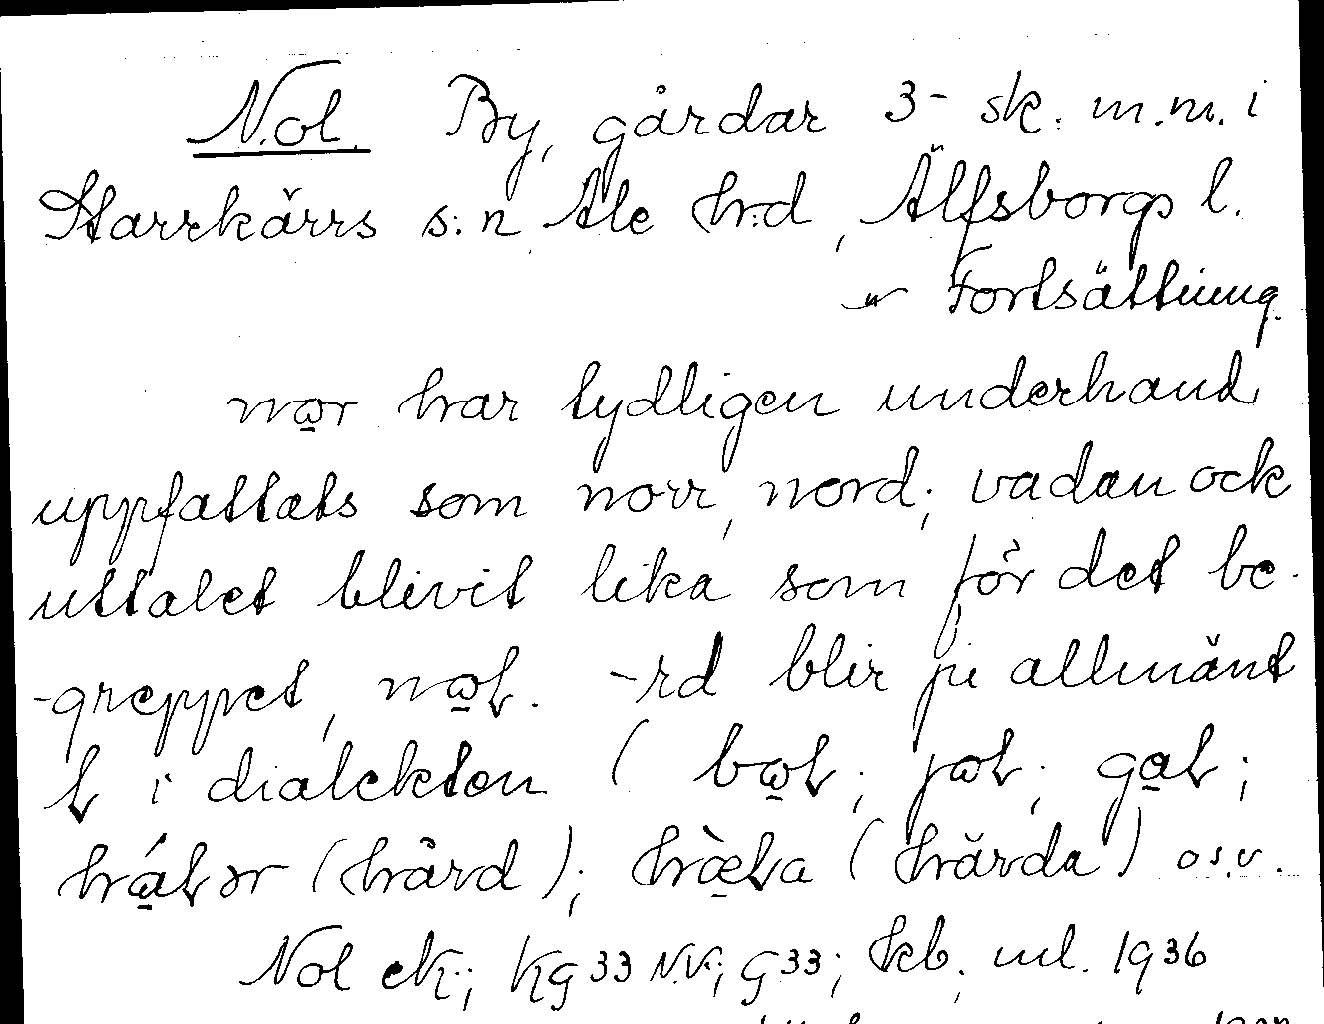 Nol. By, gårdar 3- sk. m.m. i
Starrkärrs s:n Ale hr:d, Älfsborgs l.
" Fortsättning.
nωr har tydligen underhand
uppfattats som norr, nord; vadan ock
uttalet blivit lika som för det be-
-greppet, nωł. -rd blir ju allmänt
ł i dialekten ( bωł; jωł; gał;
hålər (hård); hæ̀ła (härda) o.s.v.
Nol ek.; Kg 33 N.V.; G 33; Jkb. ul. 1936